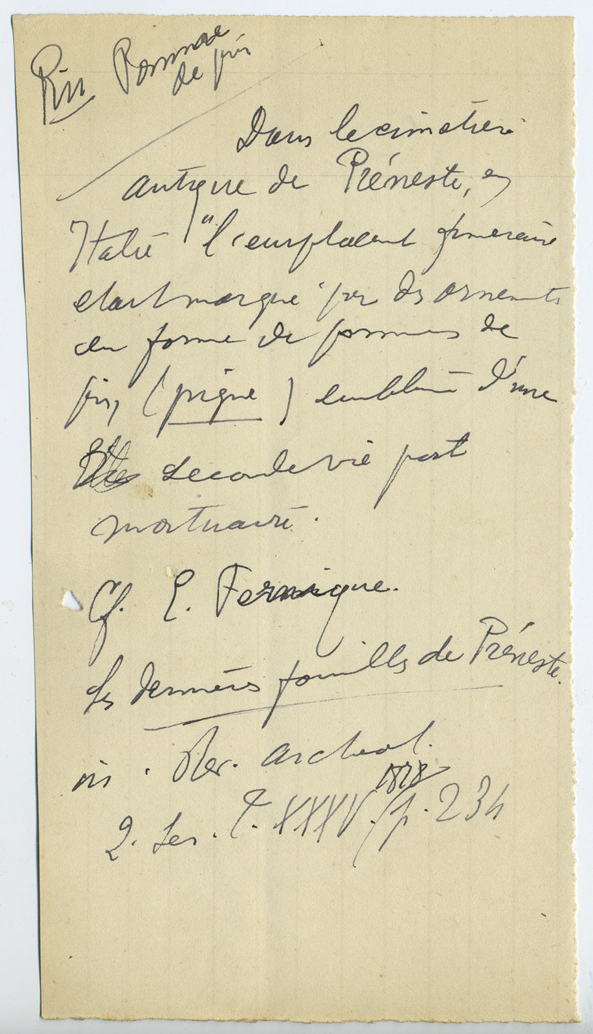 Pin Pomme
de pin
Dans le cimetière
antique de Préneste, en
Italie "l'emplacement funéraire
etait marqué par des ornements
en forme de pommes de
pin, (pigne) emblème d'une
seconde vie post
mortuaire.
Cf. E. Fernique.
Les dernières fouilles de Préneste.
in. Rev. archeol.
1878
2. Ser. T. XXXV. p. 234